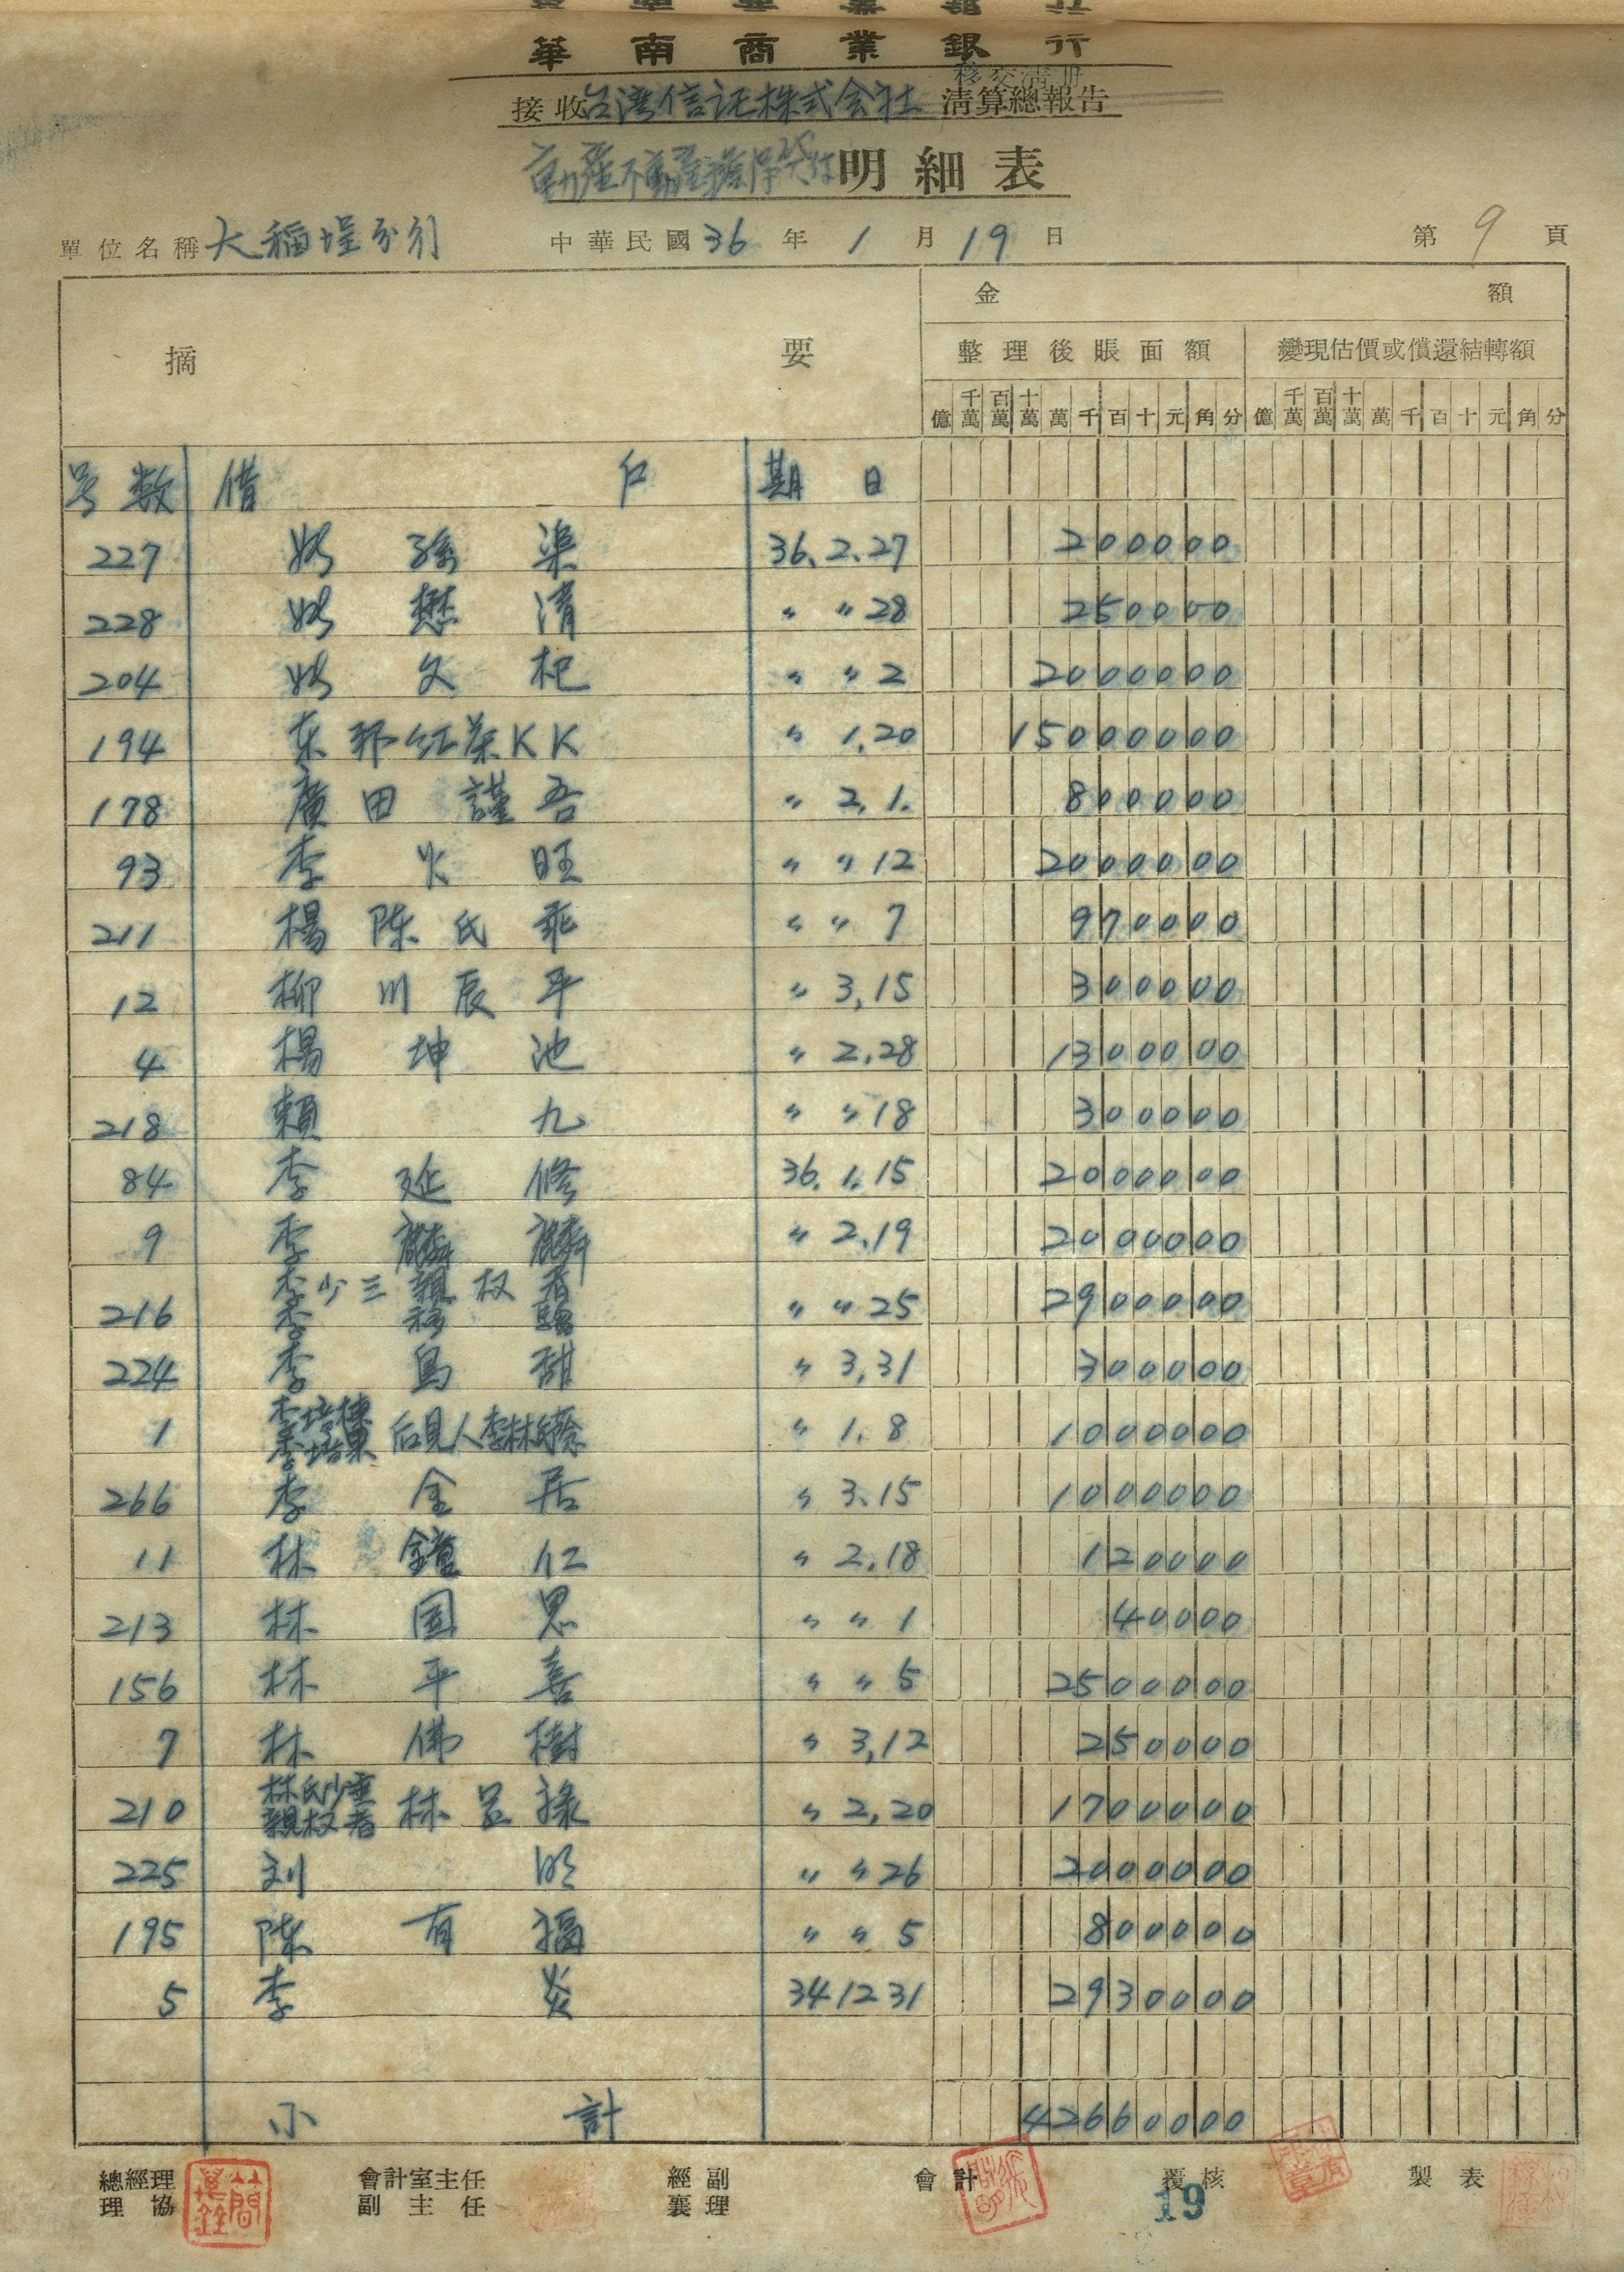 華南商業銀行
移交清册
接收台湾信託株式会社清算總報告
動產不動產擔保貸付明細表
單位名稱大稻埕分行 中華民國36年1月19日 第9頁
摘要 金額
整理後賬面額 變現估價或償還結轉額
億 千萬 百萬 十萬 萬 千 百 十 元 角 分 億 千萬 百萬 十萬 萬 千 百 十 元 角 分
号数 借户 期日
227 孫渠 36.2.27 200000
228 懋清 〃 〃 28 250000
204 文杞 〃 〃 2 2000000
194 东邦红茶KK 〃 1.20 15000000
178 廣田謹吾 〃 2.1. 800000
93 李火旺 〃 〃 12 2000000
211 楊陈氏乖 〃 〃 7 970000
12 柳川辰平 〃 3,15 300000
4 楊坤池 〃 2.28 1300000
218 賴九 〃 〃 18 300000
84 李延修 36.1.15 2000000
9 李麟麟 〃 2.19 2000000
李少三親权者
216 李 〃 〃 25 2900000
224 李烏甜 〃 3,31 300000
李培棟
1 李培東 后見人李林氏 〃 1.8 1000000
266 李金居 〃 3.15 1000000
11 林鐘仁 〃 2.18 120000
213 林国思 〃 〃 1 40000
156 林平喜 〃 〃 5 2500000
7 林佛樹 〃 3,12 250000
林氏少
210 親权者 林呈祿 〃 2,20 1700000
225 刘明 〃 〃 26 2000000
195 陈有福 〃 〃 5 800000
5 李炎 34 12 31 2930000
小計 42660000
總經理 會計室主任 經副 會計 覆核 製表
理協 副主任 襄理
19